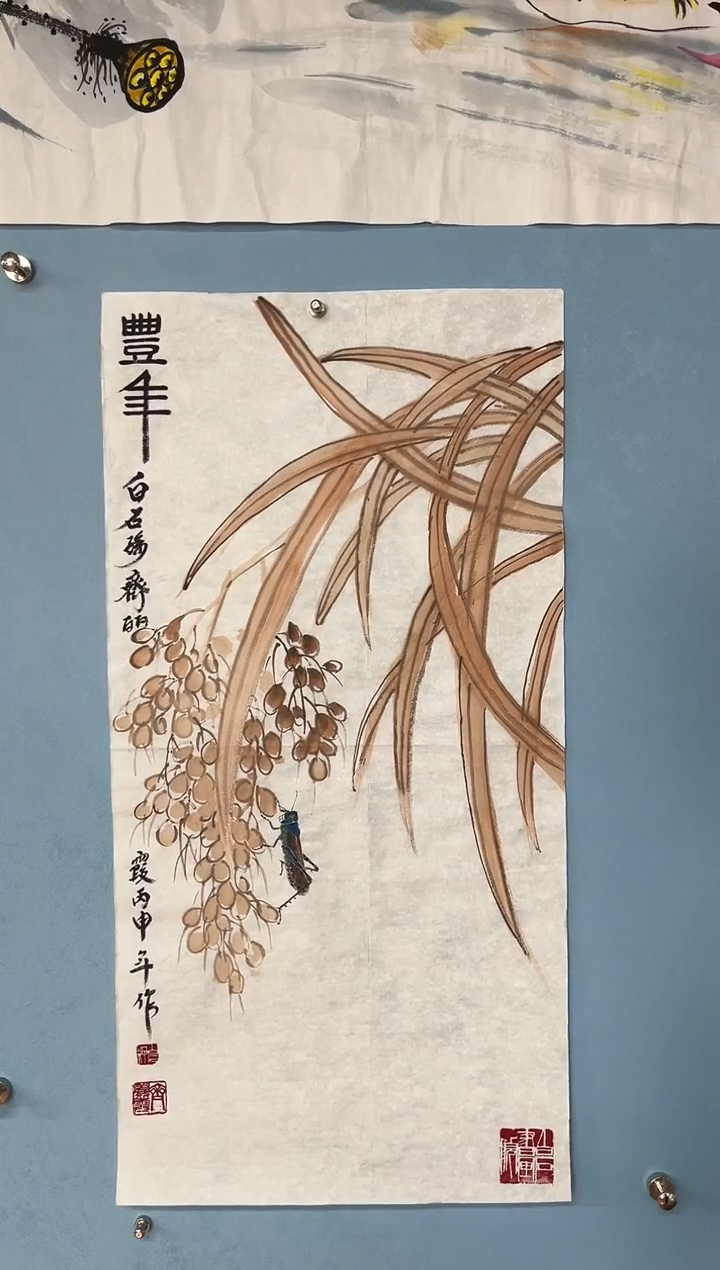 豐年
白石孫齊明
霞丙申年作